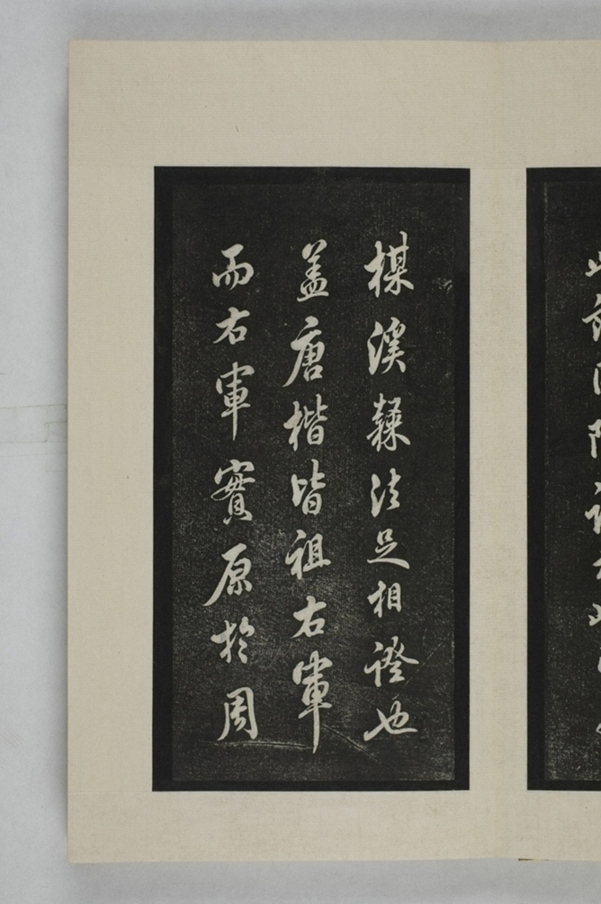 楳溪隸法足相證也
盖唐楷皆祖右軍
而右軍實原於周